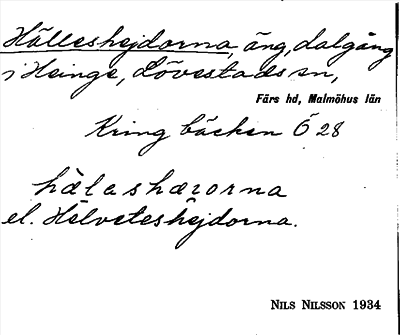 Hälleshejdorna, äng, dalgång
i Heinge, Lövestads sn,
Färs hd, Malmöhus län
Kring bäcken Ö 28
hælashæȷorna
el. Helveteshejdorna.
NILS NILSSON 1934